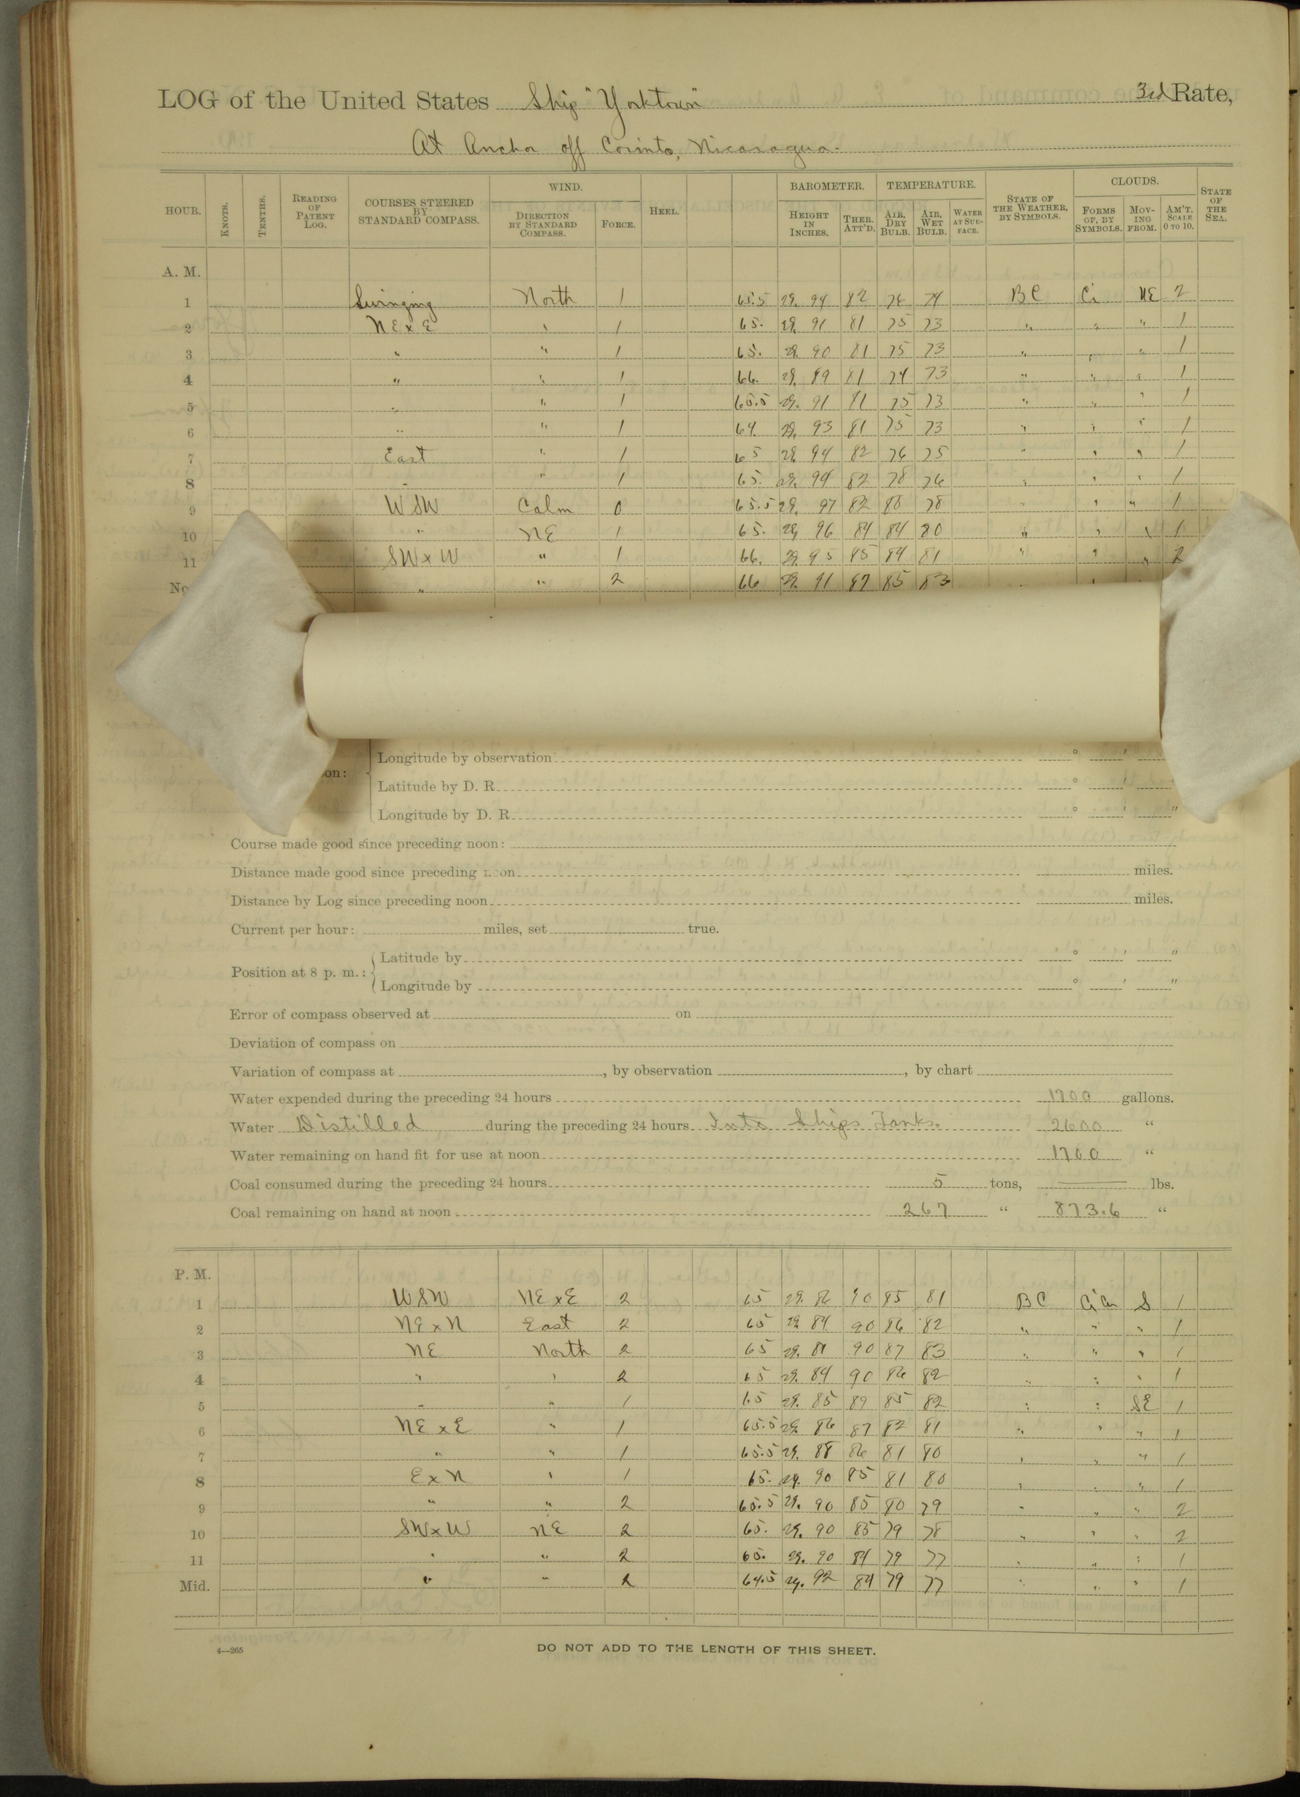 LOG of the United States Ship "Yorktown" 3rd Rate,
At Anchor off Corinto, Nicaragua.
HOUR. KNOTS. TENTHS. READING OF PATENT LOG. COURSES STEERED BY STANDARD COMPASS. WIND. DIRECTION BY STANDARD COMPASS. FORCE. HEEL. BAROMETER. HEIGHT IN INCHES. THER. ATT'D. TEMPERATURE. AIR, DRY BULB. AIR, WET BULB. WATER AT SURFACE. STATE OF THE WEATHER, BY SYMBOLS. CLOUDS. FORMS OF, BY SYMBOLS. MOVING FROM. AM'T. SCALE 0 TO 10. STATE OF THE SEA.
A. M.
1 Swinging North 1 65.5 29. 94 82 76 74 BC Ci NE 2
2 NE x E " 1 65. 29. 91 81 75 73 " " " 1
3 " " 1 65. 29. 90 81 75 73 " " " 1
4 " " 1 66. 29. 89 81 74 73 " " " 1
5 " " 1 65.5 29. 91 81 75 73 " " " 1
6 " " 1 64. 29. 93 81 75 73 " " " 1
7 East " 1 65 29. 94 82 76 75 " " " 1
8 " " 1 65. 29. 94 82 78 76 " " " 1
9 WSW Calm 0 65.5 29. 97 82 80 78 " " " 1
10 " NE 1 65. 29. 96 84 84 80 " " " 1
11 SW x W " 1 66. 29. 95 85 84 81 " " " 2
No " " 2 66 29. 91 87 85 83
Longitude by observation ° ′
on:
Latitude by D. R. ° ′
Longitude by D. R. ° ′ ″
Course made good since preceding noon:
Distance made good since preceding noon miles.
Distance by Log since preceding noon miles.
Current per hour: miles, set true.
Position at 8 p. m.: Latitude by ° ′ ″
Longitude by ° ′ ″
Error of compass observed at on
Deviation of compass on
Variation of compass at , by observation , by chart
Water expended during the preceding 24 hours 1700 gallons.
Water Distilled during the preceding 24 hours Into Ships Tanks. 2600 "
Water remaining on hand fit for use at noon 1700 "
Coal consumed during the preceding 24 hours 5 tons, — lbs.
Coal remaining on hand at noon 267 " 873.6 "
P. M.
1 WSW NE x E 2 65 29. 86 90 85 81 BC CiCu S 1
2 NE x N East 2 65 29. 84 90 86 82 " " " 1
3 NE North 2 65 29. 81 90 87 83 " " " 1
4 " " 2 65 29. 84 90 86 82 " " " 1
5 " " 1 65 29. 85 89 85 82 " " SE 1
6 NE x E " 1 65.5 29. 86 87 82 81 " " " 1
7 " " 1 65.5 29. 88 86 81 80 " " " 1
8 E x N " 1 65. 29. 90 85 81 80 " " " 1
9 " " 2 65.5 29. 90 85 80 79 " " " 2
10 SW x W NE 2 65. 29. 90 85 79 78 " " " 2
11 " " 2 65. 29. 90 84 79 77 " " " 1
Mid. " " 2 64.5 29. 92 84 79 77 " " " 1
4—265 DO NOT ADD TO THE LENGTH OF THIS SHEET.